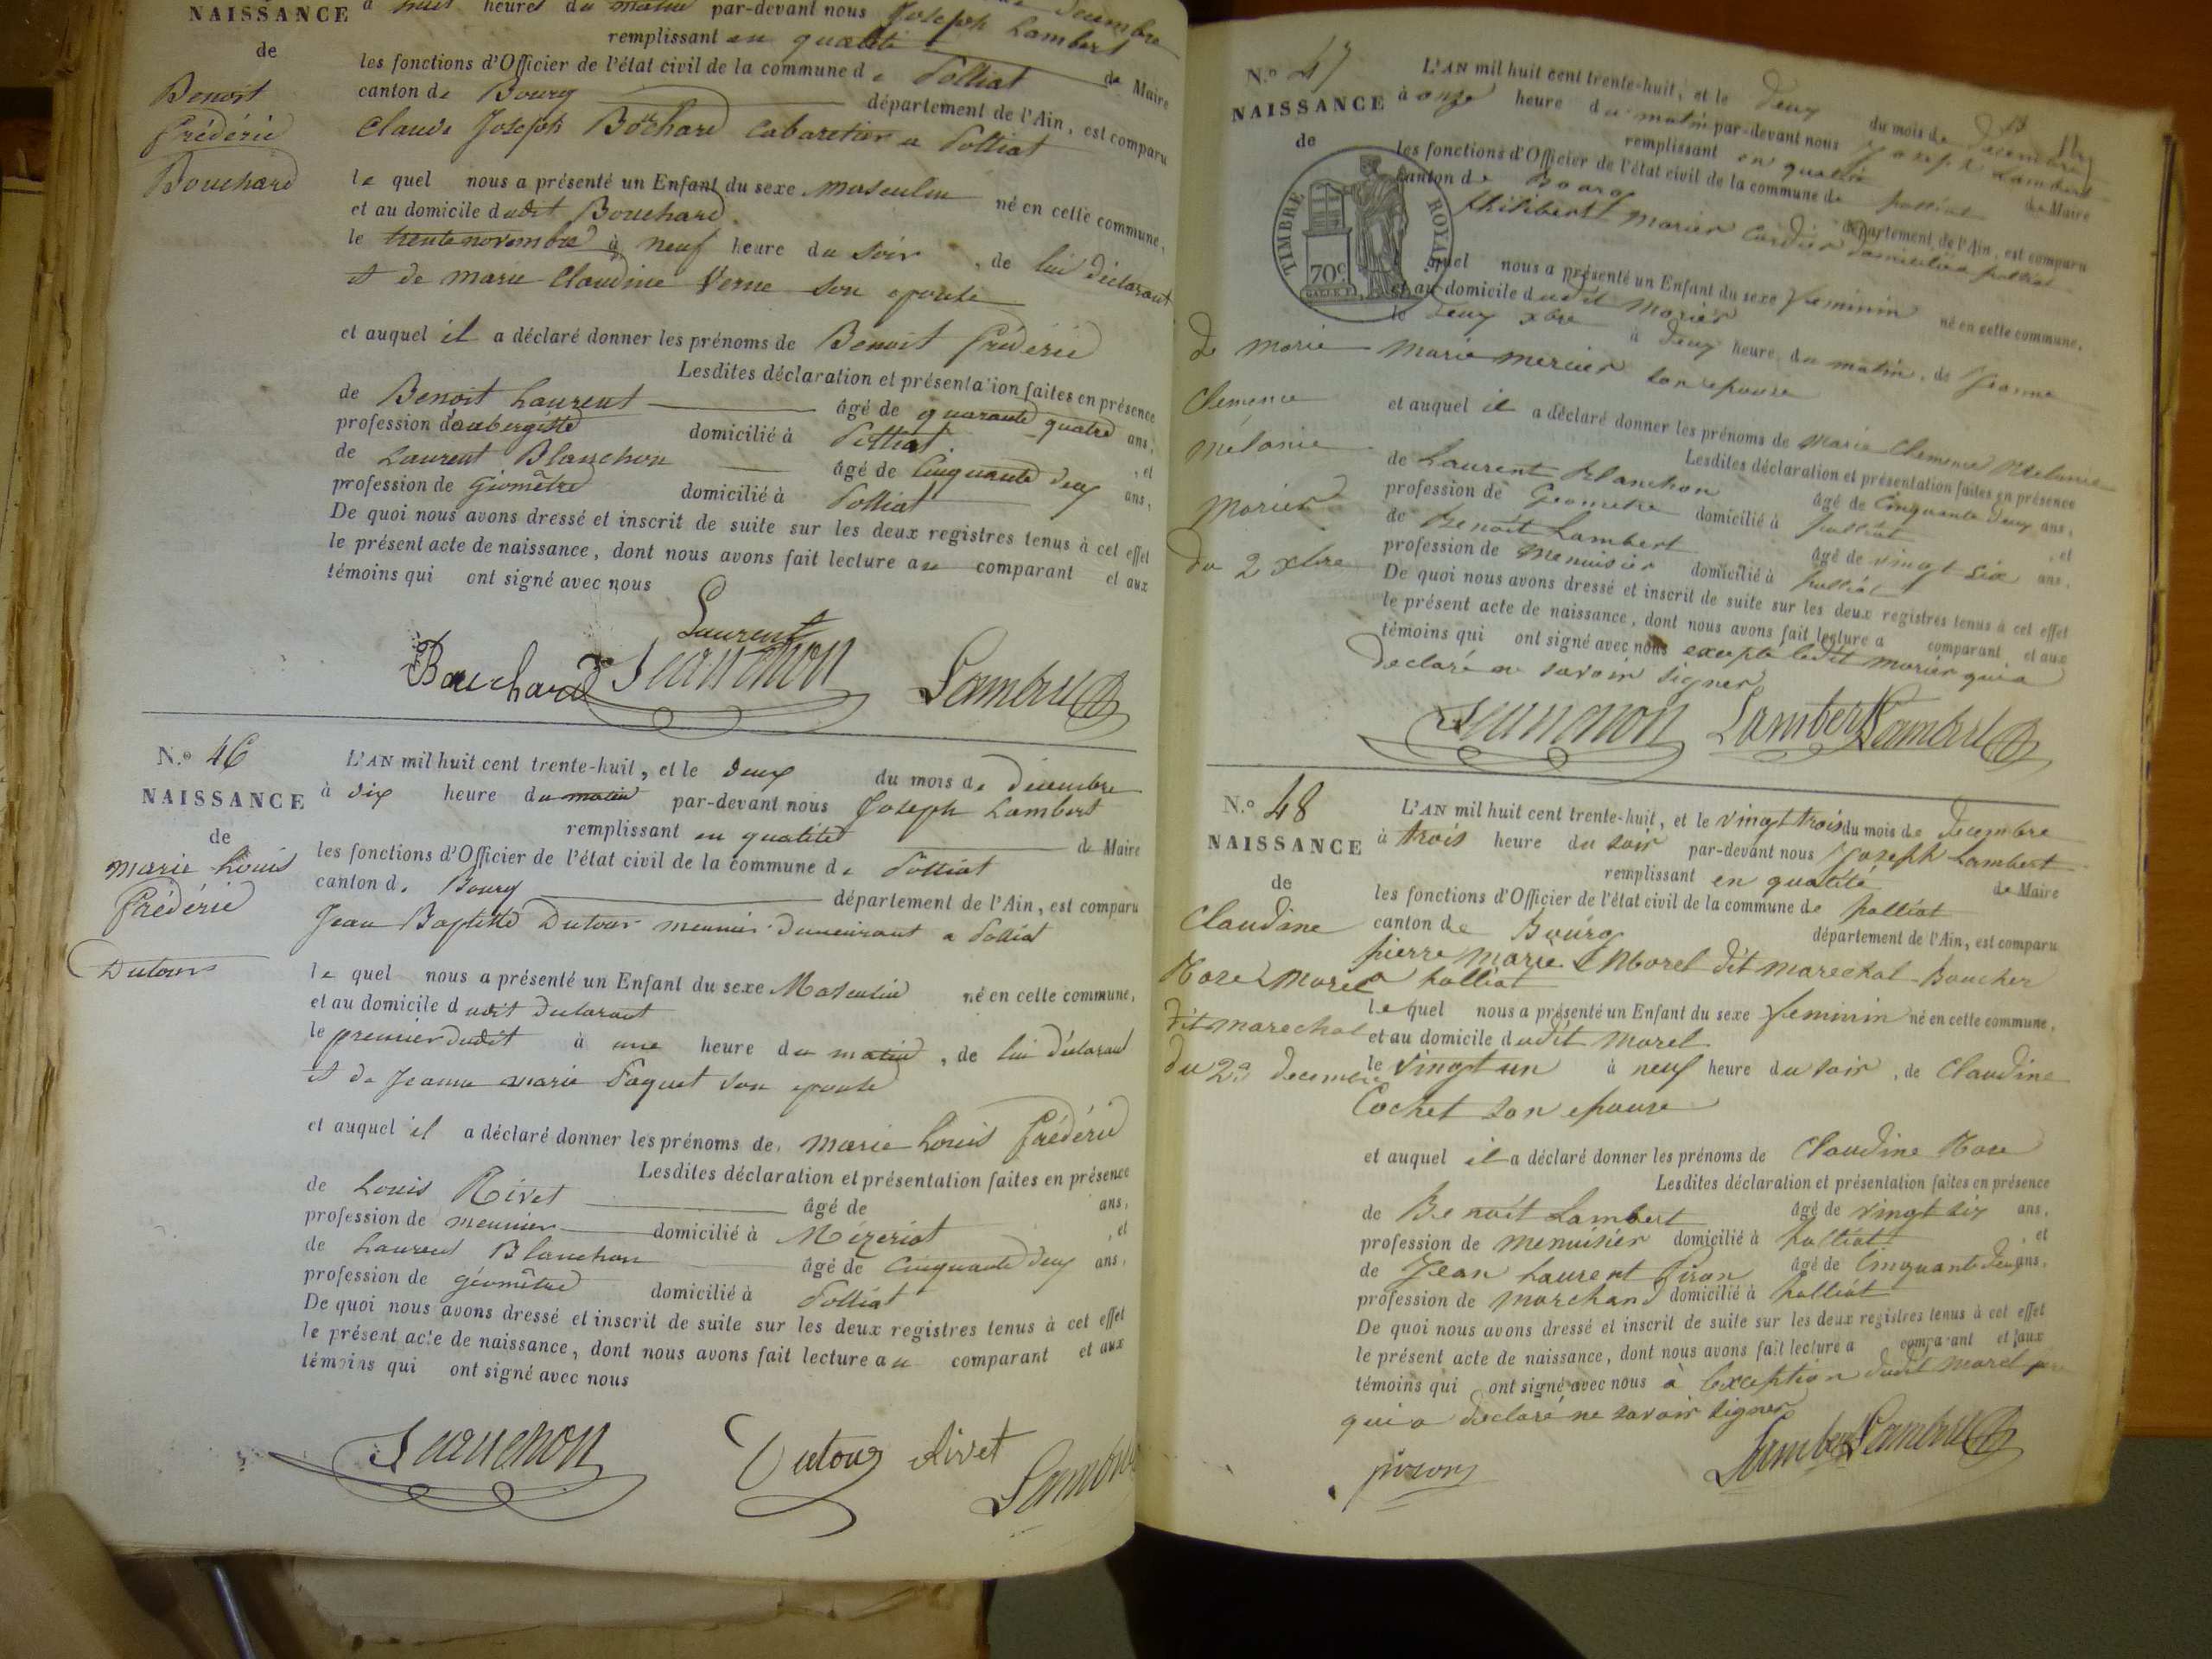 NAISSANCE
de
Benoit
frédéric
Bouchard
à huit heures du matin par-devant nous Joseph Lambert
remplissant en qualité de Maire
les fonctions d'Officier de l'état civil de la commune de Polliat
canton de Bourg département de l'Ain, est comparu
Claude Joseph Bouchard Cabaretier a Polliat
le quel nous a présenté un Enfant du sexe masculin né en cette commune,
et au domicile dudit Bouchard
le trente novembre à neuf heure du soir, de lui déclarant
et de marie Claudine Verne son epouse
et auquel il a déclaré donner les prénoms de Benoit frédéric
Lesdites déclaration et présentation faites en présence
de Benoit Laurent âgé de quarante quatre ans,
profession d'aubergiste domicilié à Polliat, et
de Laurent Blanchon âgé de Cinquante deux ans,
profession de géomètre domicilié à Polliat
De quoi nous avons dressé et inscrit de suite sur les deux registres tenus à cet effet
le présent acte de naissance, dont nous avons fait lecture au comparant et aux
témoins qui ont signé avec nous
Laurent
Bouchard Blanchon Lambert
N.º 46
NAISSANCE
de
marie Louis
frédéric
Dutour
L'AN mil huit cent trente-huit, et le deux du mois de décembre
à dix heure du matin par-devant nous Joseph Lambert
remplissant en qualité de Maire
les fonctions d'Officier de l'état civil de la commune de Polliat
canton de Bourg département de l'Ain, est comparu
Jean Baptiste Dutour meunier demeurant a Polliat
le quel nous a présenté un Enfant du sexe Masculin né en cette commune,
et au domicile dudit déclarant
le premier dudit à une heure du matin, de lui déclarant
et de Jeanne marie Paquet son epouse
et auquel il a déclaré donner les prénoms de marie Louis frédéric
Lesdites déclaration et présentation faites en présence
de Louis Rivet âgé de ans,
profession de meunier domicilié à Mézériat, et
de Laurent Blanchon âgé de Cinquante deux ans,
profession de géomètre domicilié à Polliat
De quoi nous avons dressé et inscrit de suite sur les deux registres tenus à cet effet
le présent acte de naissance, dont nous avons fait lecture au comparant et aux
témoins qui ont signé avec nous
Blanchon Dutour Rivet Lambert
N.º 47
NAISSANCE
de
TIMBRE ROYAL
70c
de marie
Clemence
mélanie
morier
du 2 xbre
L'AN mil huit cent trente-huit, et le deux du mois de decembre
à onze heure du matin par-devant nous Joseph Lambert
remplissant en qualité de Maire
les fonctions d'Officier de l'état civil de la commune de polliat
canton de Bourg département de l'Ain, est comparu
philibert morier cordier domicilié a polliat
lequel nous a présenté un Enfant du sexe feminin né en cette commune,
et au domicile dudit morier
le deux xbre à deux heure du matin, de Jeanne
marie mercier son epouse
et auquel il a déclaré donner les prénoms de marie Clemence Melanie
Lesdites déclaration et présentation faites en présence
de Laurent Blanchon âgé de Cinquante deux ans,
profession de Geometre domicilié à polliat, et
de Benoit Lambert âgé de vingt six ans,
profession de Menuisier domicilié à polliat
De quoi nous avons dressé et inscrit de suite sur les deux registres tenus à cet effet
le présent acte de naissance, dont nous avons fait lecture a comparant et aux
témoins qui ont signé avec nous excepté ledit morier qui a
declaré ne savoir signer
Blanchon Lambert Lambert
N.º 48
NAISSANCE
de
Claudine
Rose Morel
dit marechal
du 23 decembre
L'AN mil huit cent trente-huit, et le vingt trois du mois de decembre
à trois heure du soir par-devant nous Joseph Lambert
remplissant en qualité de Maire
les fonctions d'Officier de l'état civil de la commune de polliat
canton de Bourg département de l'Ain, est comparu
pierre marie Morel dit marechal Boucher
a polliat
lequel nous a présenté un Enfant du sexe feminin né en cette commune,
et au domicile dudit morel
le vingt un à neuf heure du soir, de Claudine
Cochet son epouse
et auquel il a déclaré donner les prénoms de Claudine Rose
Lesdites déclaration et présentation faites en présence
de Benoit Lambert âgé de vingt six ans,
profession de menuisier domicilié à polliat, et
de Jean Laurent Piron âgé de Cinquante deux ans,
profession de marchand domicilié à polliat
De quoi nous avons dressé et inscrit de suite sur les deux registres tenus à cet effet
le présent acte de naissance, dont nous avons fait lecture a comparant et aux
témoins qui ont signé avec nous à lexception dudit morel
qui a declaré ne savoir signer
piron Lambert Lambert